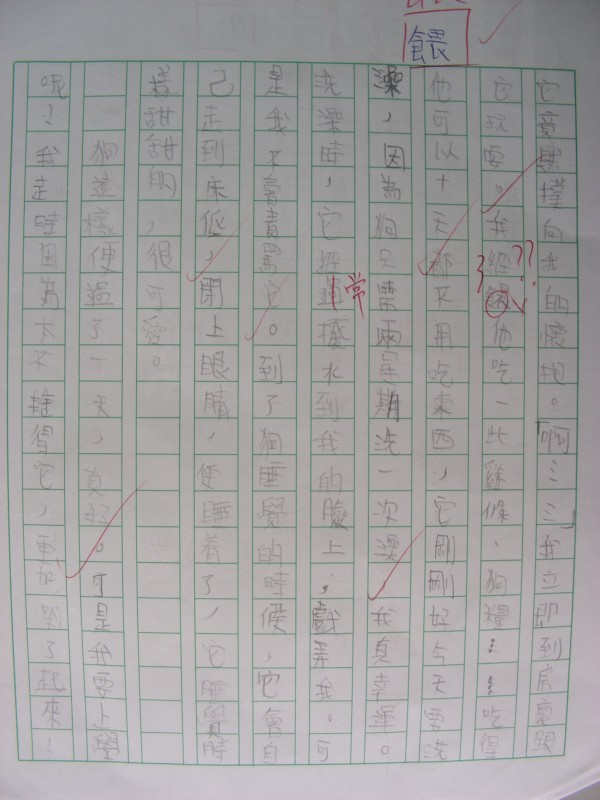 餵
它竟然撞向我的懷抱。「啊……」我立即到房裏跟
它玩耍。我經他吃一些、狗糧……吃得
??
他可以十天都不用吃東西，它剛剛好今天要洗
澡，因為狗只需兩星期洗一次澡，我真幸運。
洗澡時，它經過撥水到我的臉上，戲弄我。可
常
是我不會責罵它。到了狗睡覺的時候，它會自
己走到床低，閉上眼睛，便睡着了，它睡覺時
樣甜甜的，很可愛。
狗這樣便過了一天，真好。可是我要上學
呢！我走時因為大不捨得它，更加哭了起來！